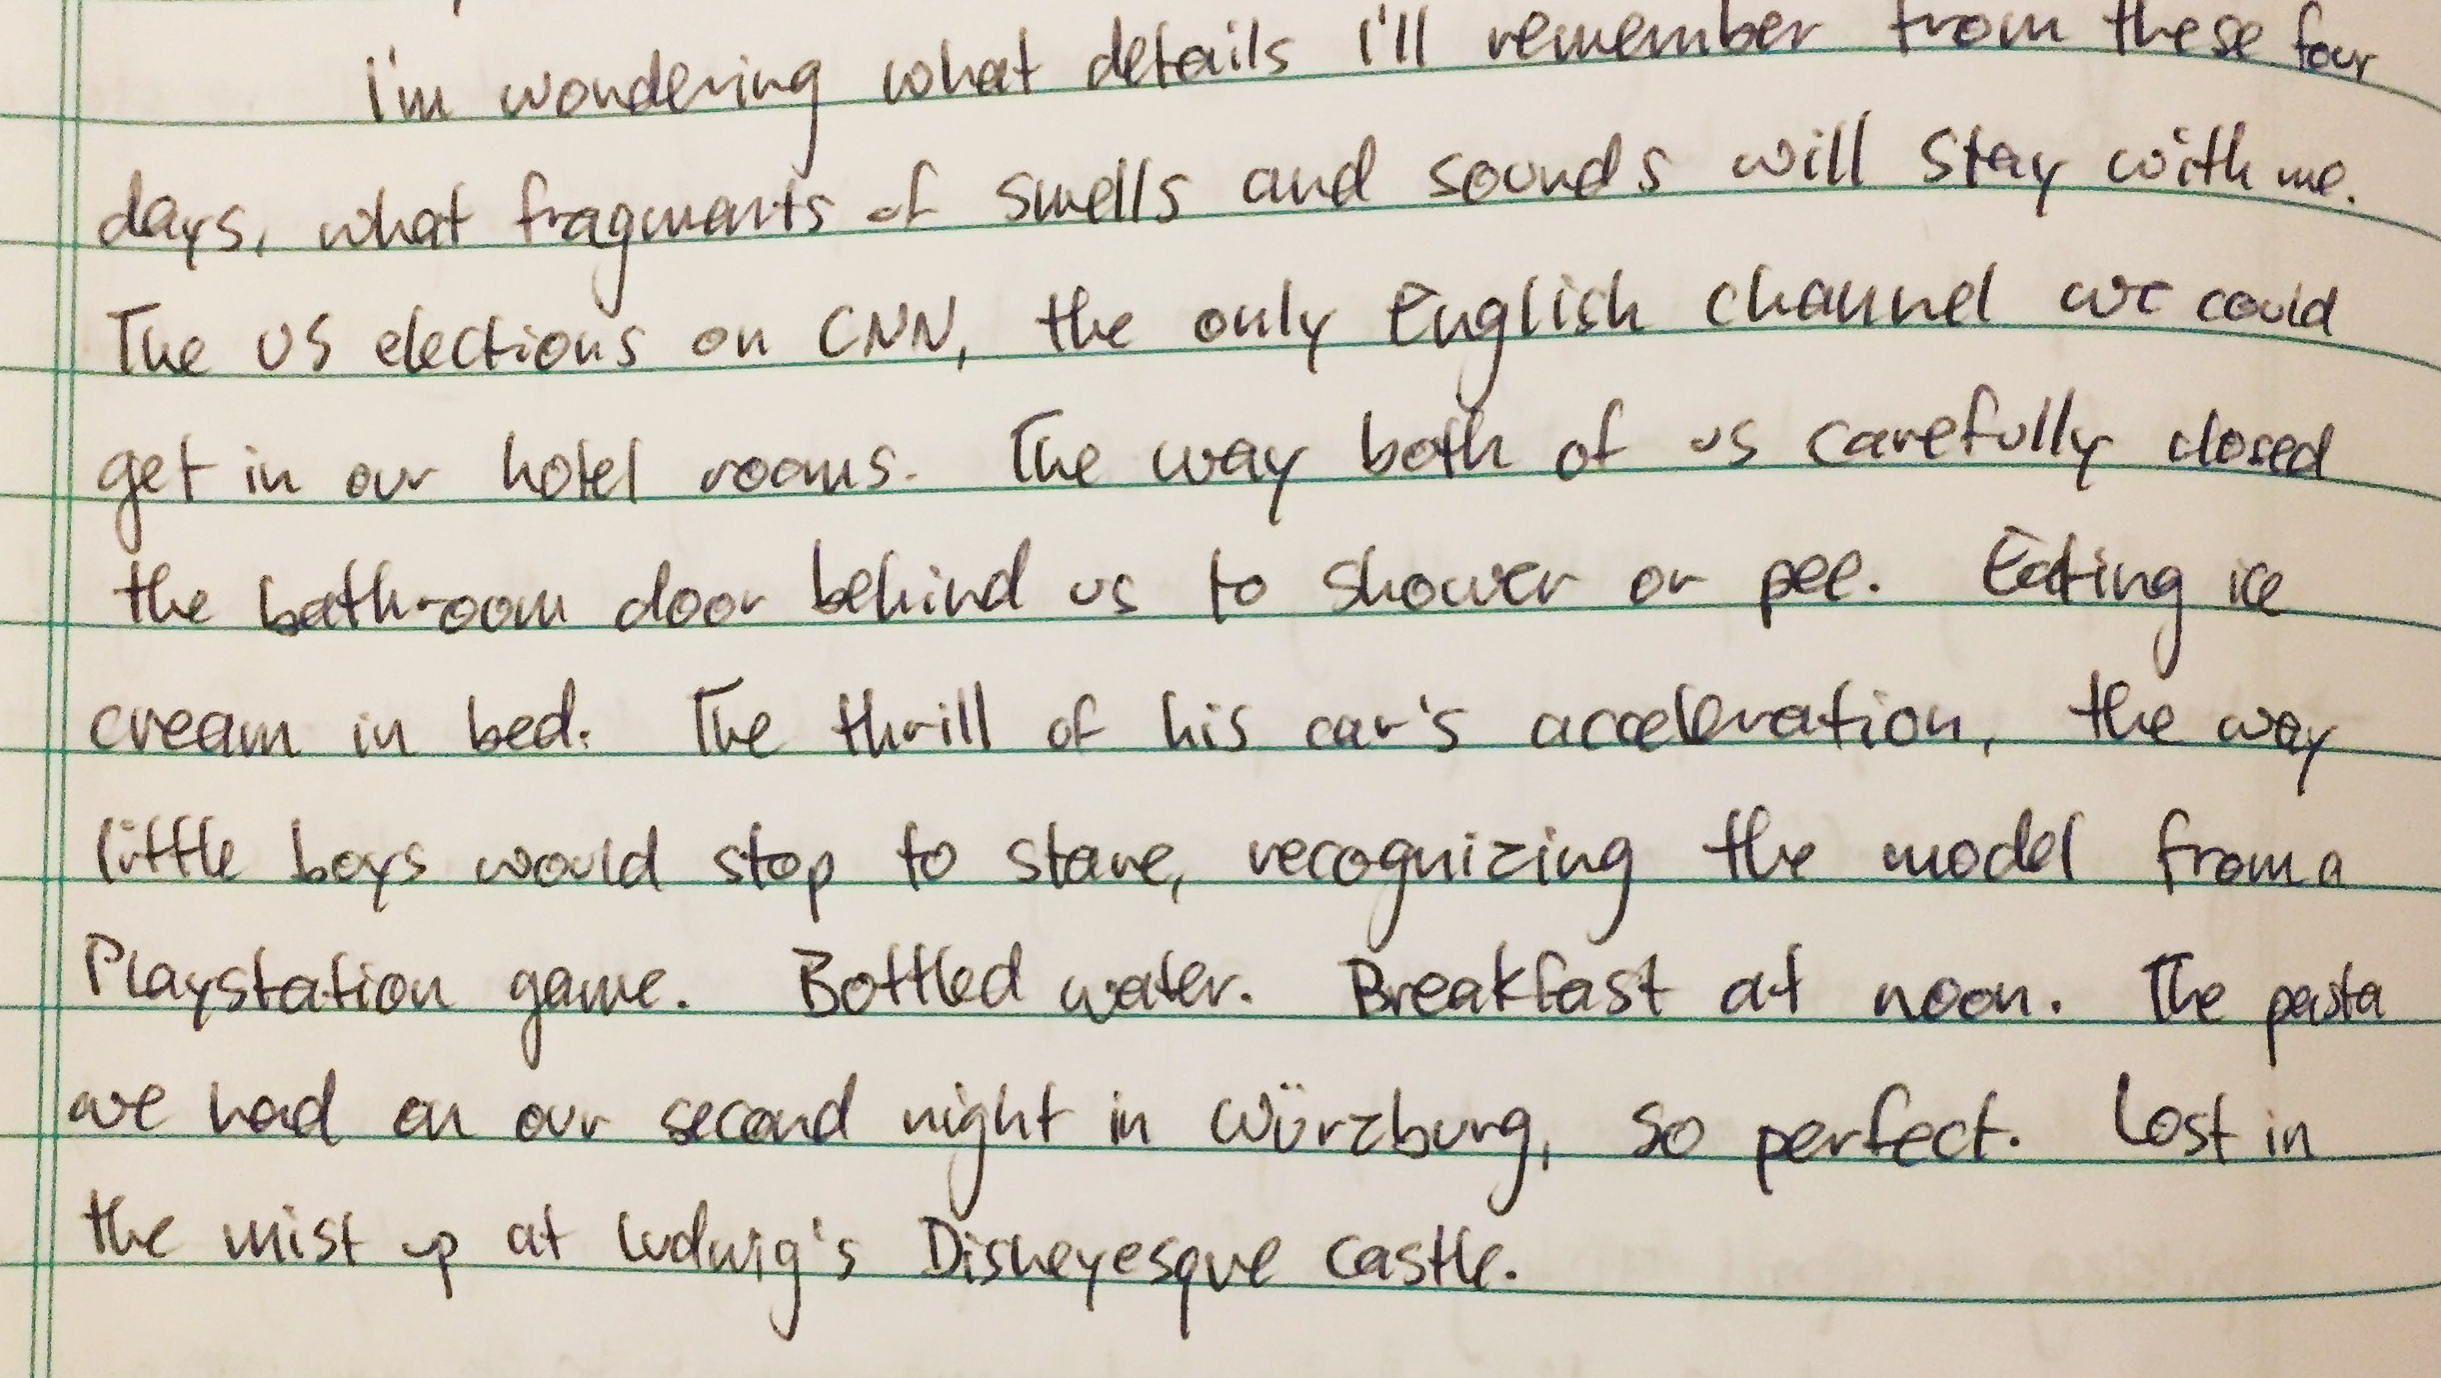 I'm wondering what details I'll remember from these four
days, what fragments of smells and sounds will stay with me.
The US elections on CNN, the only English channel we could
get in our hotel rooms. The way both of us carefully closed
the bathroom door behind us to shower or pee. Eating ice
cream in bed. The thrill of his car's acceleration, the way
little boys would stop to stare, recognizing the model from a
Playstation game. Bottled water. Breakfast at noon. The pasta
we had on our second night in Würzburg, so perfect. Lost in
the mist up at Ludwig's Disneyesque castle.